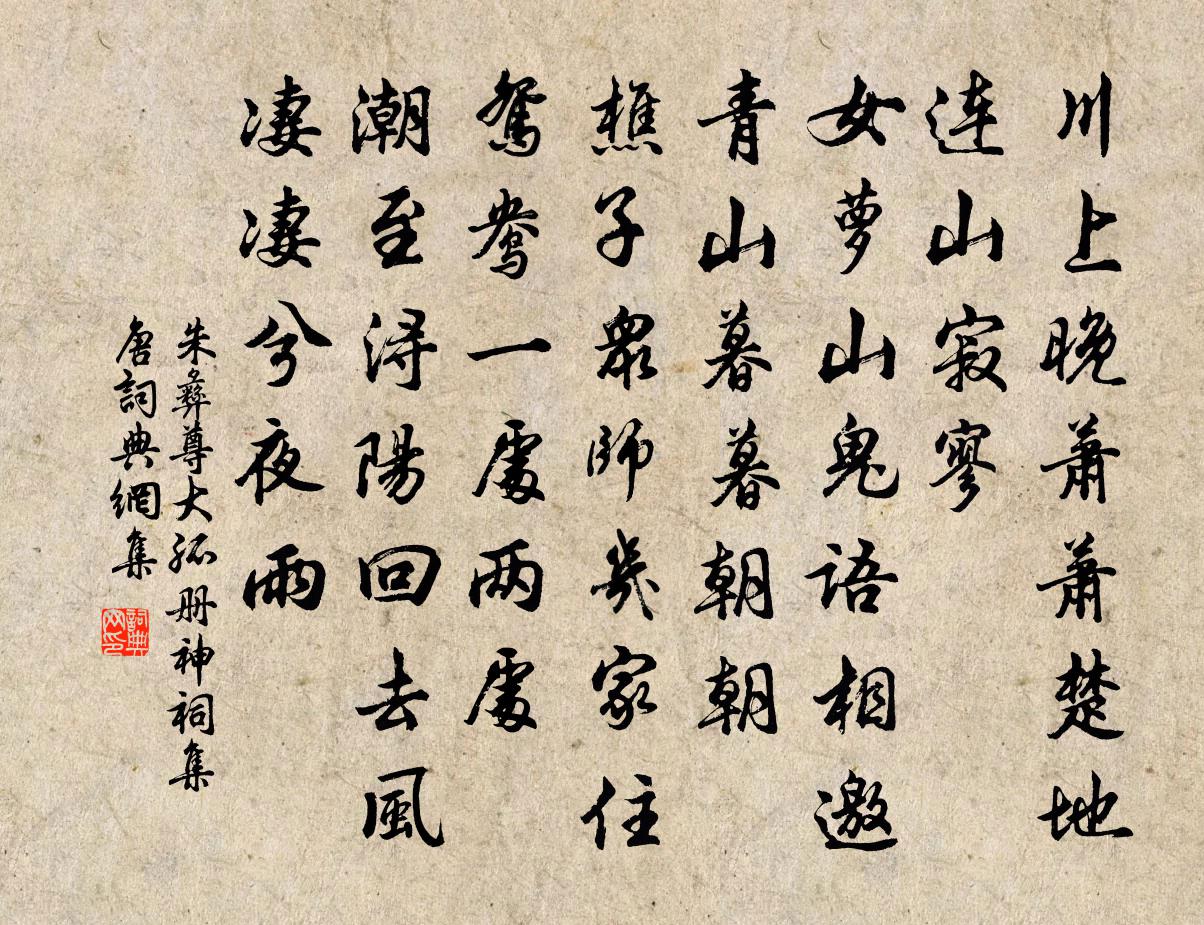 川上晚蕭蕭楚地
連山寂寥
女萝山鬼語相邀
青山暮暮朝朝
樵子眾師幾家住
鴛鴦一處两處
潮至潯陽回去風
凄凄兮夜雨
朱彝尊大孤册神祠集
唐詞典網集
詞典网印